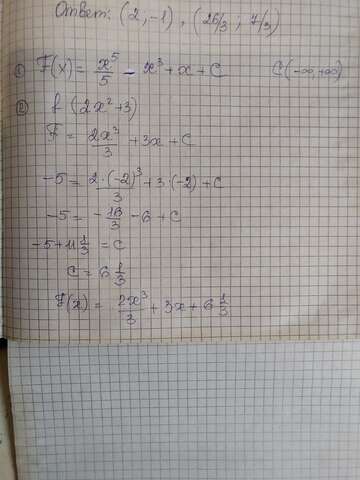 Ответ: (2, -1), (26/3; 7/3)
① F(x) = x⁵/5 - x³ + x + C C(-∞, +∞)
② f (2x² + 3)
F = 2x³/3 + 3x + C
-5 = 2·(-2)³/3 + 3·(-2) + C
-5 = -16/3 - 6 + C
-5 + 11 1/3 = C
C = 6 1/3
F(x) = 2x³/3 + 3x + 6 1/3